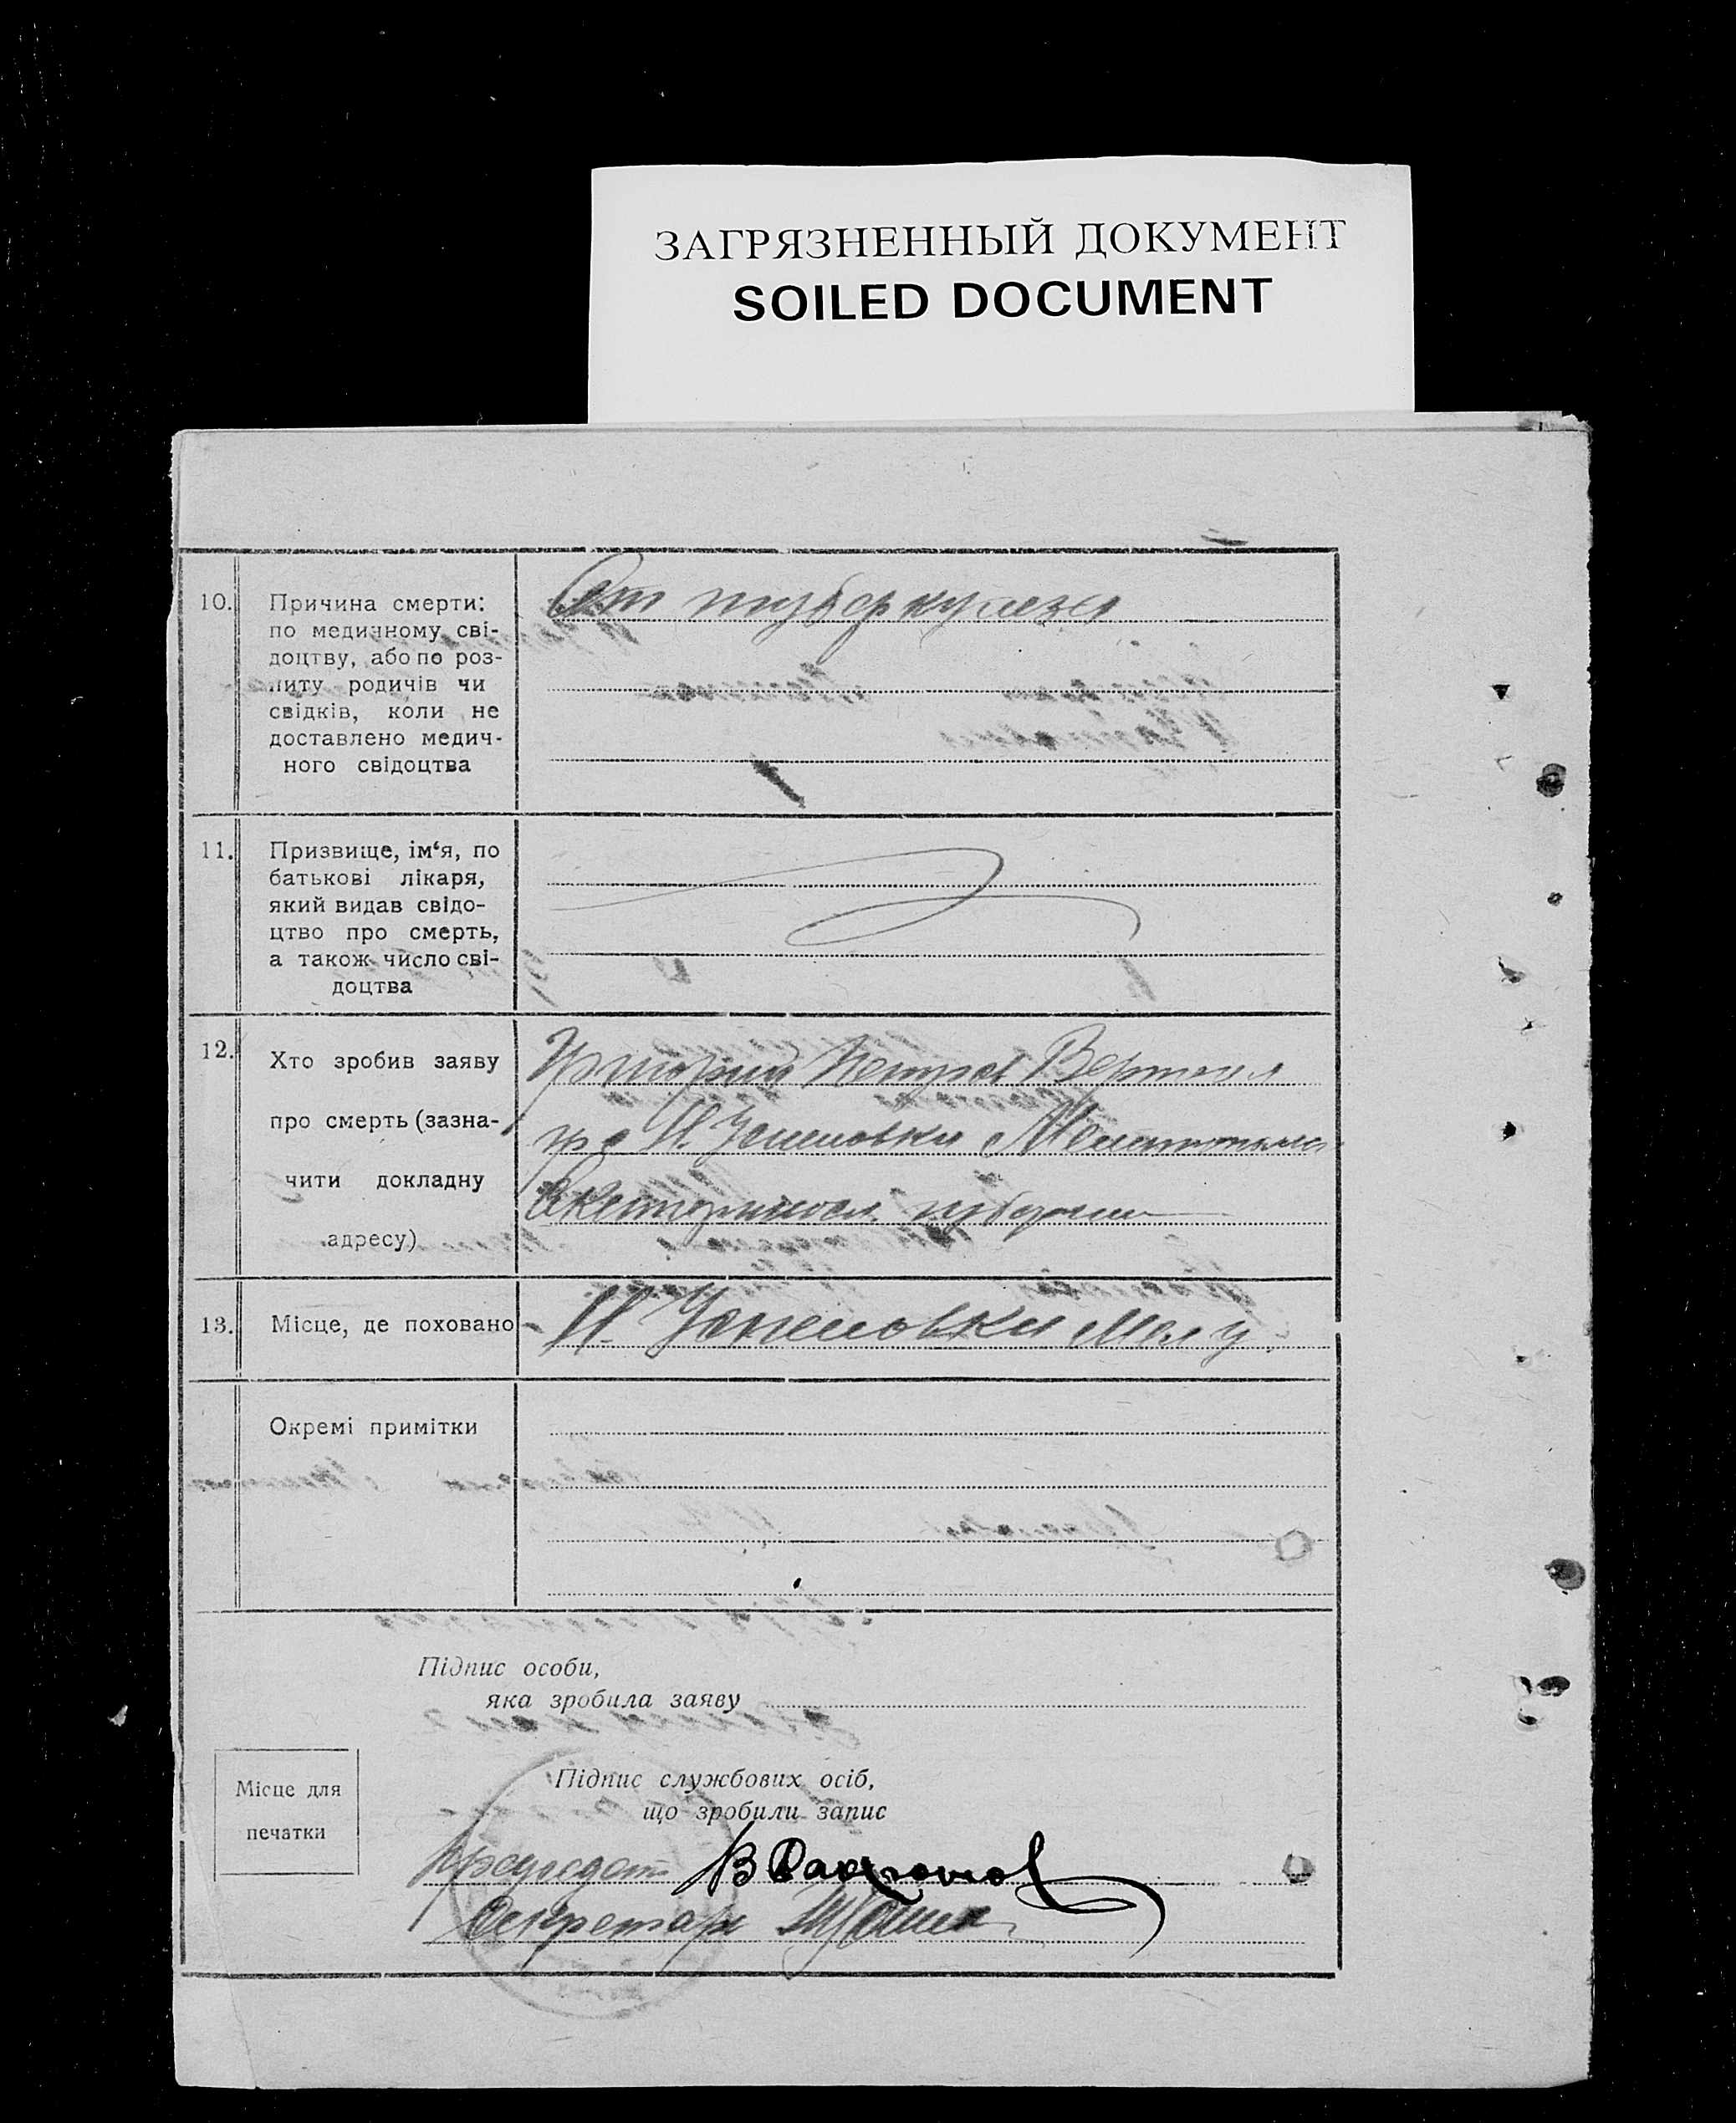 ЗАГРЯЗНЕННЫЙ ДОКУМЕНТ
SOILED DOCUMENT
10.
Причина смерти:
по медичному сві-
доцтву, або по роз-
питу родичів чи
свідків, коли не
доставлено медич-
ного свідоцтва
От туберкулеза
11.
Призвище, ім‘я, по
батькові лікаря,
який видав свідо-
цтво про смерть,
а також число сві-
доцтва
12.
Хто зробив заяву
про смерть (зазна-
чити докладну
адресу)
Григорий Петров
гр с Н. Успеновки
Екатериносл. губернии
13.
Місце, де поховано
Н. Успеновки
Окремі примітки
Підпис особи,
яка зробила заяву
Місце для
печатки
Підпис службових осіб,
що зробили запис
Председат
Секретарь